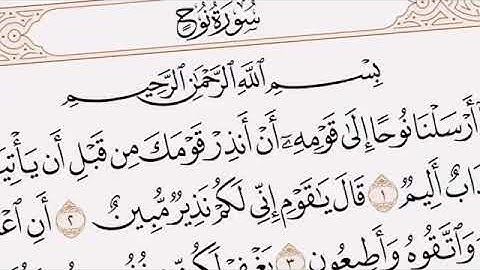 سُورَةُ نُوحٍ
بِسْمِ اللَّهِ الرَّحْمَٰنِ الرَّحِيمِ
أَرْسَلْنَا نُوحًا إِلَىٰ قَوْمِهِۦٓ أَنْ أَنذِرْ قَوْمَكَ مِن قَبْلِ أَن
أَلِيمٌ ١ قَالَ يَٰقَوْمِ إِنِّي لَكُمْ نَذِيرٌ مُّبِينٌ ٢ أَنِ
وَٱتَّقُوهُ وَأَطِيعُونِ ٣ يَغْفِرْ لَكُم